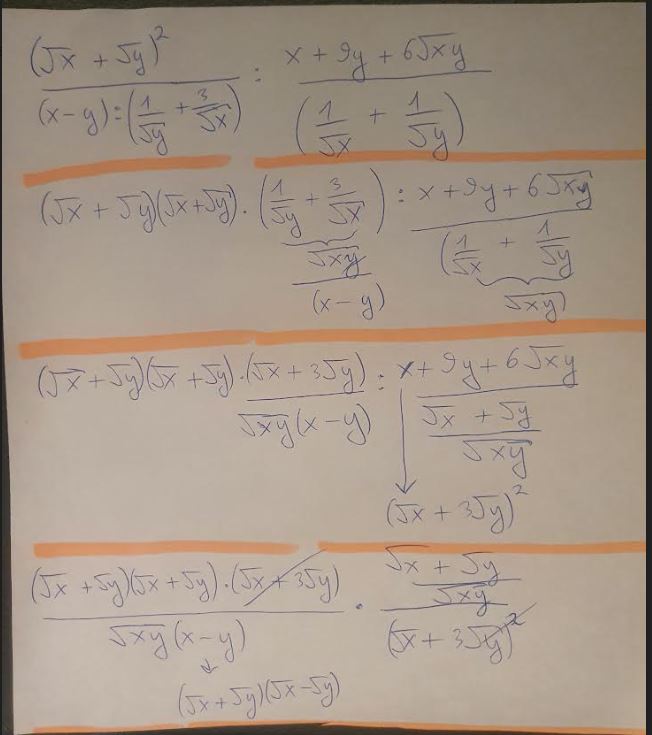 (√x + √y)² / (x-y):(1/√y + 3/√x) : x + 9y + 6√xy / (1/√x + 1/√y)
(√x + √y)(√x+√y)·(1/√y + 3/√x) : x + 9y + 6√xy / (1/√x + 1/√y)
√xy √xy)
(x-y)
(√x + √y)(√x + √y)·(√x + 3√y) / √xy(x-y) : x + 9y + 6√xy / (√x + √y / √xy)
(√x + 3√y)²
(√x + √y)(√x + √y)·(√x + 3√y) / √xy(x-y) · (√x + √y / √xy) / (√x + 3√y)²
(√x + √y)(√x - √y)